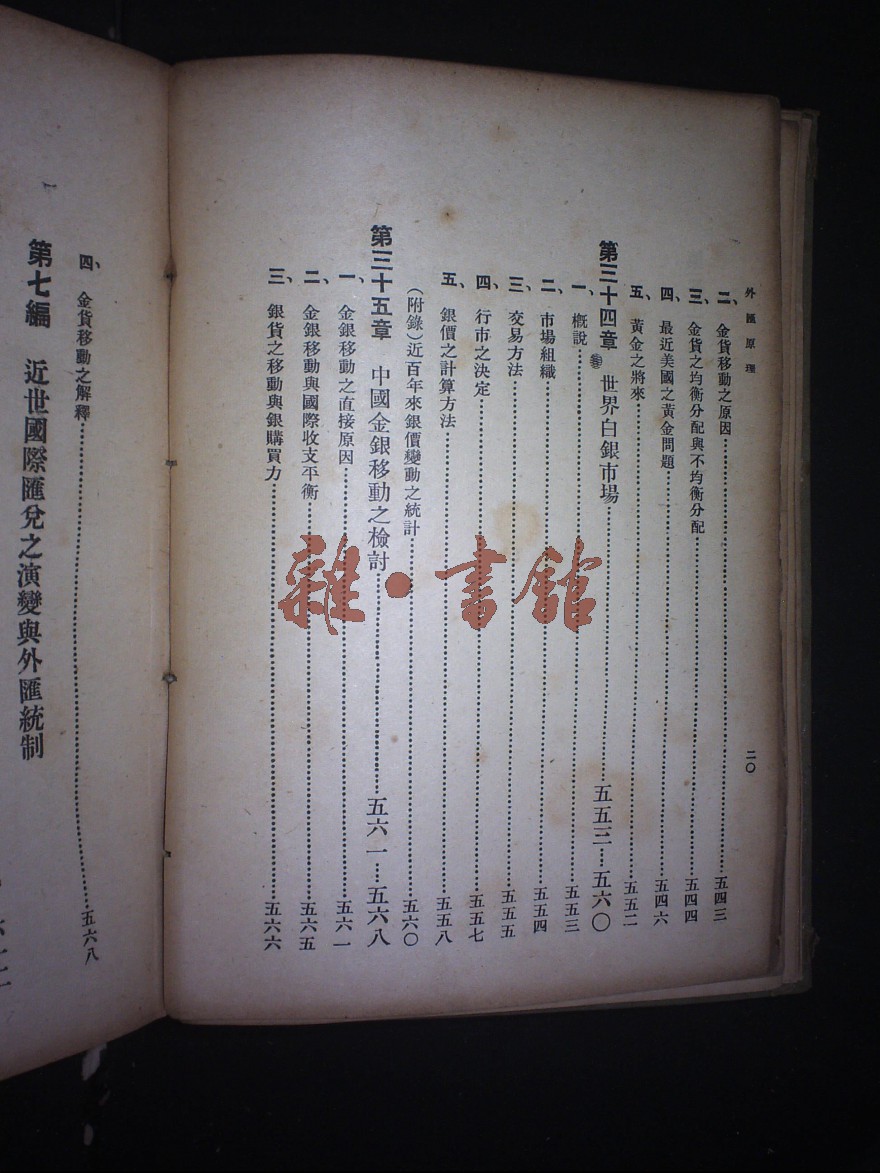 外匯原理
二〇
二、金貨移動之原因……五四三
三、金貨之均衡分配與不均衡分配……五四四
四、最近美國之黃金問題……五四六
五、黃金之將來……五五二
第三十四章　世界白銀市場……五五三—五六〇
一、概說……五五三
二、市場組織……五五四
三、交易方法……五五五
四、行市之決定……五五七
五、銀價之計算方法……五五八
(附錄)近百年來銀價變動之統計……五六〇
第三十五章　中國金銀移動之檢討……五六一—五六八
一、金銀移動之直接原因……五六一
二、金銀移動與國際收支平衡……五六五
三、銀貨之移動與銀購買力……五六六
四、金貨移動之解釋……五六八
第七編　近世國際匯兌之演變與外匯統制
雜·書館